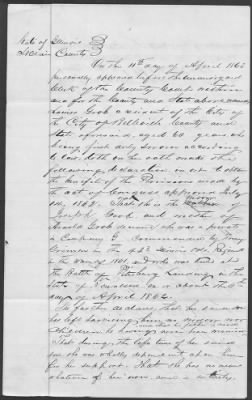 State of Illinois
St Clair County
On this 11th day of April 1864
personally appeared before the undersigned
Clerk of the County Court within
and for the County and State above named
a resident of the City of
the City of Belleville County and
State aforesaid, aged 60 years who
being first duly sworn according
to law doth on her oath make the
following declaration in order to obtain
the benefit of the Provisions made by
the act of Congress approved July
14, 1862. That she is the
Joseph and mother of
Arnold deceased who was a private
in Company G Commanded by
in the 43rd Regiment
in the War of 1861 and who was killed at
the Battle of Pittsburg Landing in the
State of Tennessee on or about the 6th
day of April 1862.
She further declares that her said son
has left surviving him no widow nor
children he having never been married
That during the life time of her said
son she was wholly dependent upon him
for her support. That she has no means
whatever of her own and is entirely